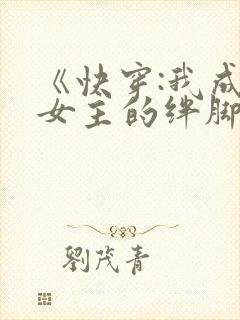 《快穿:我成
女主的绊脚
劉茂青